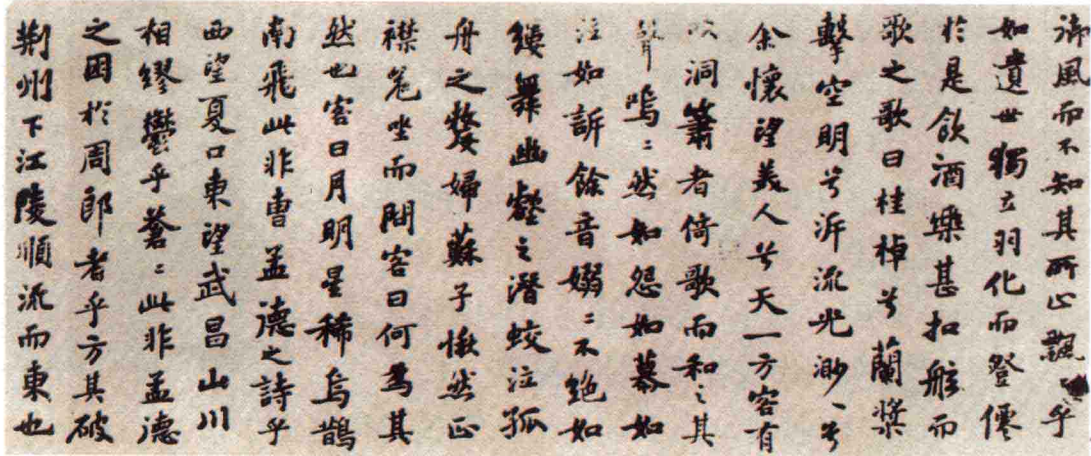 御風而不知其所止飄〻乎
如遺世獨立羽化而登僊
於是飲酒樂甚扣舷而
歌之歌曰桂棹兮蘭槳
擊空明兮泝流光渺〻兮
余懷望美人兮天一方客有
吹洞簫者倚歌而和之其
聲嗚〻然如怨如慕如
泣如訴餘音嫋〻不絕如
縷舞幽壑之潛蛟泣孤
舟之嫠婦蘇子愀然正
襟危坐而問客曰何為其
然也客曰月明星稀烏鵲
南飛此非曹孟德之詩乎
西望夏口東望武昌山川
相繆鬱乎蒼〻此非孟德
之困於周郎者乎方其破
荊州下江陵順流而東也